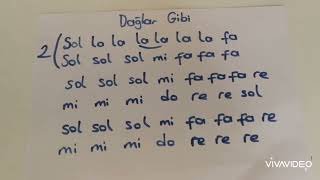 Dağlar Gibi
2 ( Sol la la la la la la fa
Sol sol sol mi fa fa fa
sol sol sol mi fa fa fa re
mi mi mi do re re sol
sol sol sol mi fa fa fa re
mi mi mi do re re re
VIVAVIDEO